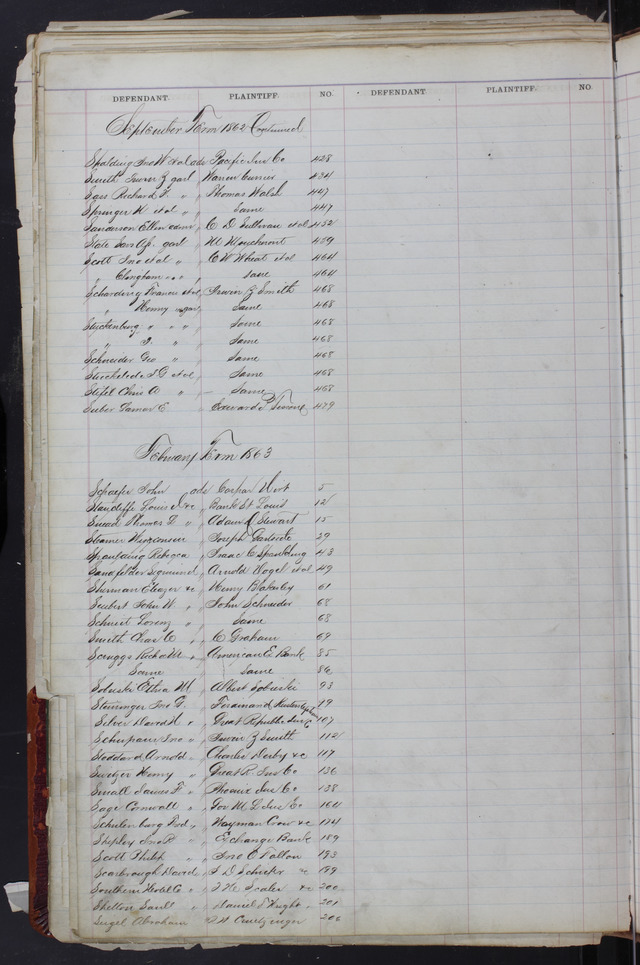 DEFENDANT. PLAINTIFF. NO. DEFENDANT. PLAINTIFF. NO.
September Term 1862 Continued
Spalding Jno W et al ads Pacific Ins Co 428
Smith Irwin Z garl " Warren Currier 434
Sass Richard F. " " Thomas Walsh 447
Springer H et al " Same 447
Sanderson Ellen admr " C D Sullivan et al 452
State Sav. As. garl " M 459
Scott Jno et al " " C W Wheat et al 464
" Clingham " " " Same 464
Francis et al " Irwin Z Smith 468
" Henry " garl " Same 468
" " " " Same 468
" " " " Same 468
Schneider Geo " " Same 468
et al " Same 468
Stifel Chris A " Same 468
Suber Lamar C " Edward 479
February Term 1863
Schaefer John ads Caspar 5
Louis & c " Bank St Louis 12
Snead Thomas L " " Adam J Stewart 15
Steamer Wisconsin " Joseph 39
Spaulding Rebecca " Isaac C Spaulding 43
Sigmund " Arnold Vogel et al 49
Sherman Eleazer & c " Henry Blakesley 61
Seibert John W " " John Schneider 68
Schmit Lorenz " " Same 68
Smith Chas C " " C Graham 69
Scruggs Richd M " " American E. Bank 85
Same " Same 86
Sobuski Ethna M " Albert Sobuski 93
Jno G. " Ferdinand 19
Silver David H " " Great Republic Ins Co 107
Jno " " Irwin Z Smith 112
Stoddard Arnold " " Charles Derby & c 117
Switzer Henry " Great R. Ins Co 136
Small James F " " Phoenix Ins Co 138
Sage Cornwall " " Gov M L Ins Co 164
Schulenburg Fred " " Wayman Crow & c 174
Shepley Jno R " " Exchange Bank 189
Scott Philip " " Jno O Fallon 193
Scarbrough David " & c 199
Southern Hotel Co " " & c 200
Shelton Saml " " Daniel " 201
Siegel Abraham 206